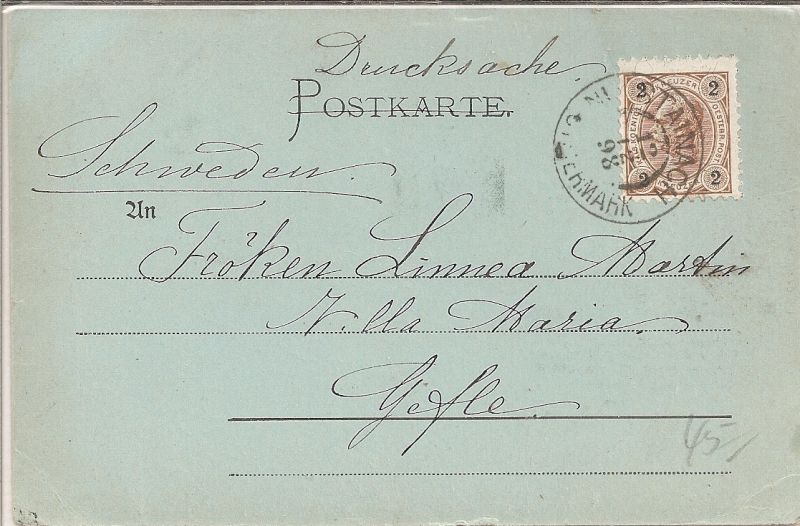 Drucksache.
POSTKARTE.
Schweden.
An
Fröken Linnea Martin
Villa Maria.
Gefle.
45
2 2
2 2
KREUZER OESTERR. POST
STEIERMARK
98